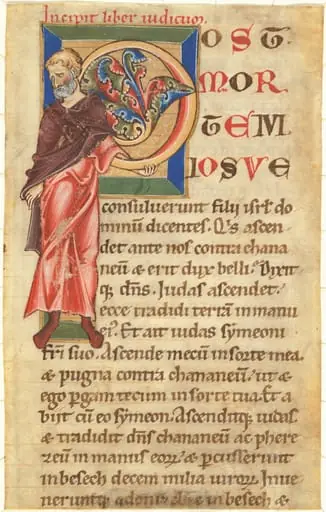 Incipit liber iudicum.
POST
MOR
TEM
IOSVE
consuluerunt filii isrl do
minum dicentes. Qis ascen
det ante nos contra chana
neum & erit dux belli. Dixit
q; dns. Iudas ascendet.
ecce tradidi terram in manu
ei'. Et ait iudas symeoni
fri suo. Ascende mecu in sorte mea.
& pugna contra chananeu. ut &
ego pgam tecum in sorte tua. Et a
biit cu eo symeon. Ascenditq; iudas.
& tradidit dns chananeu ac phere
zeum in manus eor. & pcusserunt
in besech decem milia uiror. Inue
neruntq; adonibezec in besech &